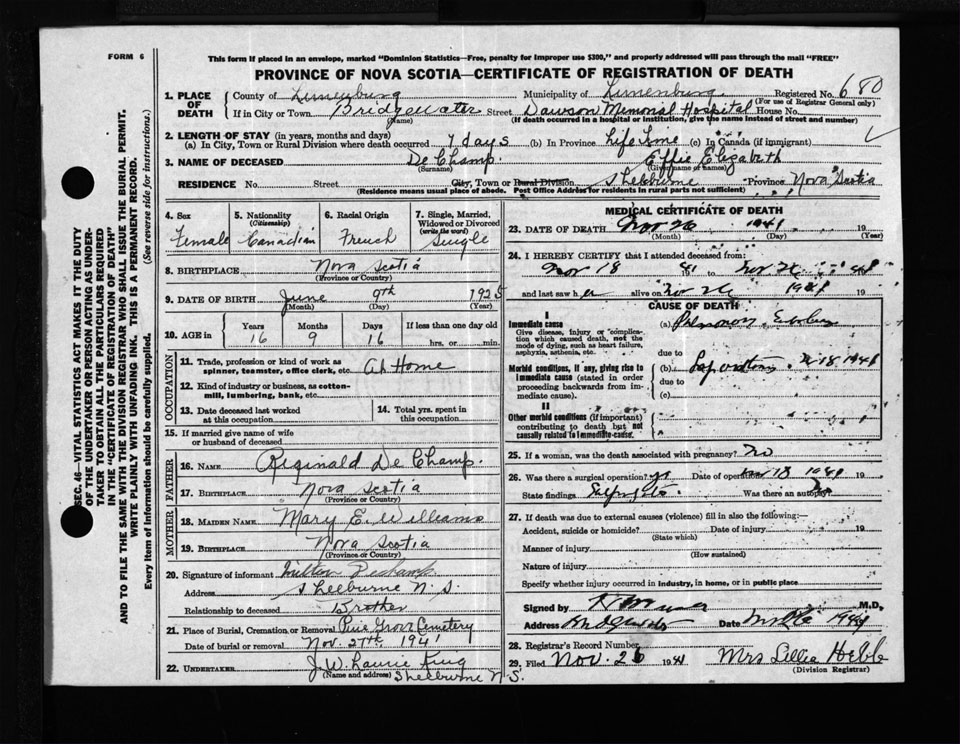 FORM 6
This form if placed in an envelope, marked "Dominion Statistics—Free, penalty for improper use $300," and properly addressed will pass through the mail "FREE"
PROVINCE OF NOVA SCOTIA—CERTIFICATE OF REGISTRATION OF DEATH
SEC. 46—VITAL STATISTICS ACT MAKES IT THE DUTY
OF THE UNDERTAKER OR PERSON ACTING AS UNDER-
TAKER TO OBTAIN ALL THE PARTICULARS REQUIRED
IN THE "CERTIFICATE OF REGISTRATION OF DEATH"
AND TO FILE THE SAME WITH THE DIVISION REGISTRAR WHO SHALL ISSUE THE BURIAL PERMIT.
WRITE PLAINLY WITH UNFADING INK. THIS IS A PERMANENT RECORD.
Every item of information should be carefully supplied. (See reverse side for instructions.)
1. PLACE OF DEATH County of Lunenburg Municipality of Lunenburg Registered No. 680
(For use of Registrar General only)
If in City or Town Bridgewater Street Dawson Memorial Hospital House No.
(Name) (If death occurred in a hospital or institution, give the name instead of street and number)
2. LENGTH OF STAY (in years, months and days)
(a) In City, Town or Rural Division where death occurred 7 days (b) In Province Life Time (c) In Canada (if immigrant)
3. NAME OF DECEASED De Champ Effie Elizabeth
(Surname) (Given name or names)
RESIDENCE No. Street City, Town or Rural Division Shelburne Province Nova Scotia
(Residence means usual place of abode. Post Office Address for residents in rural parts not sufficient)
4. Sex Female
5. Nationality (Citizenship) Canadian
6. Racial Origin French
7. Single, Married, Widowed or Divorced (write the word) Single
8. BIRTHPLACE Nova Scotia
(Province or Country)
9. DATE OF BIRTH June 9th 1925
(Month) (Day) (Year)
10. AGE in Years 16 Months 9 Days 16 If less than one day old hrs. or min.
OCCUPATION
11. Trade, profession or kind of work as spinner, teamster, office clerk, etc. At Home
12. Kind of industry or business, as cotton-mill, lumbering, bank, etc.
13. Date deceased last worked at this occupation
14. Total yrs. spent in this occupation
15. If married give name of wife or husband of deceased
FATHER
16. NAME Reginald De Champ
17. BIRTHPLACE Nova Scotia
(Province or Country)
MOTHER
18. MAIDEN NAME Mary E. Williams
19. BIRTHPLACE Nova Scotia
(Province or Country)
20. Signature of informant Milton Dechamp
Address Shelburne N. S.
Relationship to deceased Brother
21. Place of Burial, Cremation or Removal Pine Grove Cemetery
Date of burial or removal Nov. 27th 1941
22. UNDERTAKER J. W. Laurie King
(Name and address) Shelburne N.S.
MEDICAL CERTIFICATE OF DEATH
23. DATE OF DEATH Nov 26 1941 19
(Month) (Day) (Year)
24. I HEREBY CERTIFY that I attended deceased from:
Nov 18 41 to Nov 26 1941 19
and last saw her alive on Nov 26 1941 19
CAUSE OF DEATH
I
Immediate cause (a)
Give disease, injury or complication which caused death, not the mode of dying, such as heart failure, asphyxia, asthenia, etc.
due to
Morbid conditions, if any, giving rise to immediate cause (stated in order proceeding backwards from immediate cause). (b) 18 1941
due to
(c)
II
Other morbid conditions (if important) contributing to death but not causally related to immediate cause.
25. If a woman, was the death associated with pregnancy? No
26. Was there a surgical operation? yes Date of operation Nov 18 1941 19
State findings Was there an autopsy?
27. If death was due to external causes (violence) fill in also the following:
Accident, suicide or homicide? Date of injury 19
(State which)
Manner of injury
(How sustained)
Nature of injury
Specify whether injury occurred in industry, in home, or in public place
Signed by M.D.
Address Bridgewater Date Nov 26 1941
28. Registrar's Record Number
29. Filed Nov. 26 1941 Mrs Lillia Hebb
(Division Registrar)